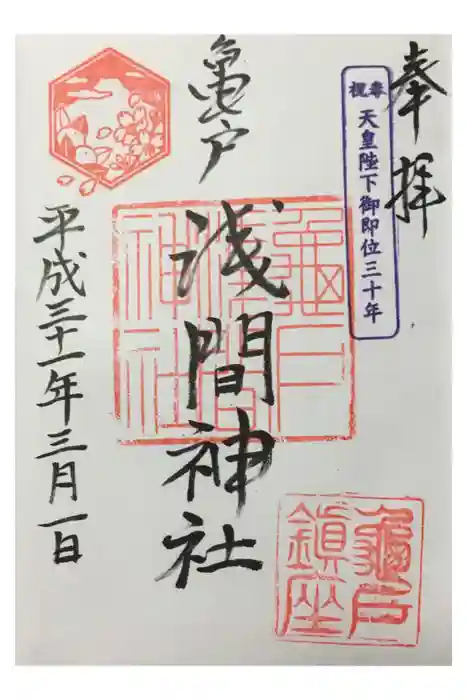 奉拝
奉祝 天皇陛下御即位三十年
亀戸
浅間神社
平成三十一年三月一日
龜戸
浅間
神社
龜戸
鎮座